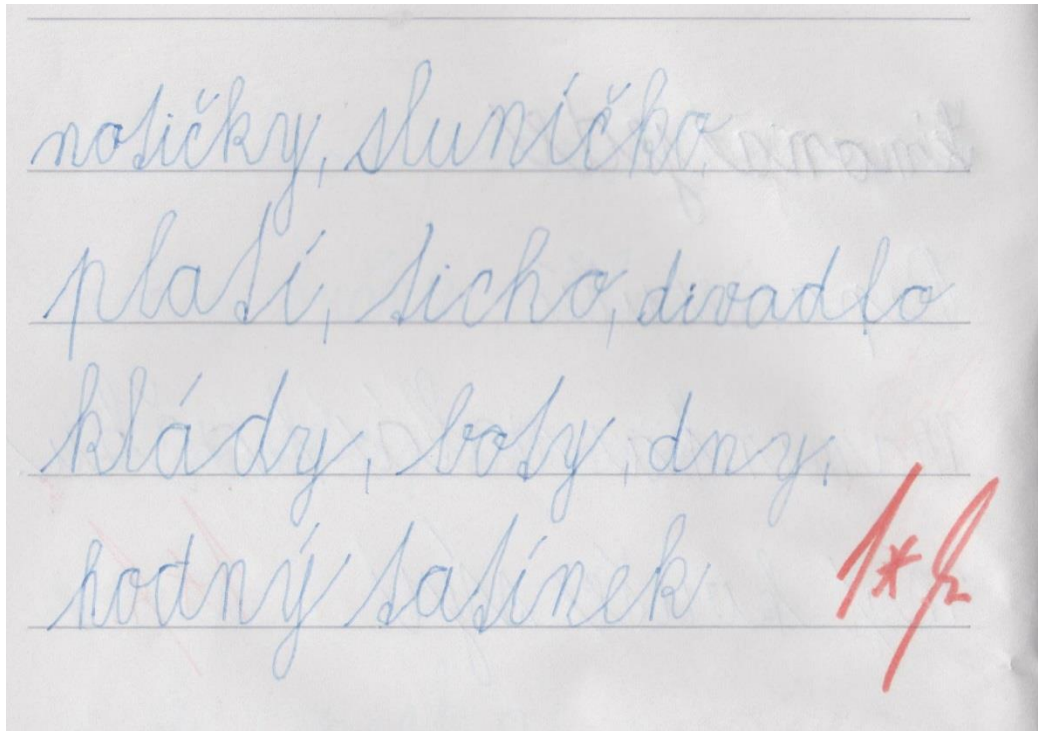 notičky, sluníčko,
platí, ticho, divadlo
klády, boty, dny,
hodný tatínek
1*